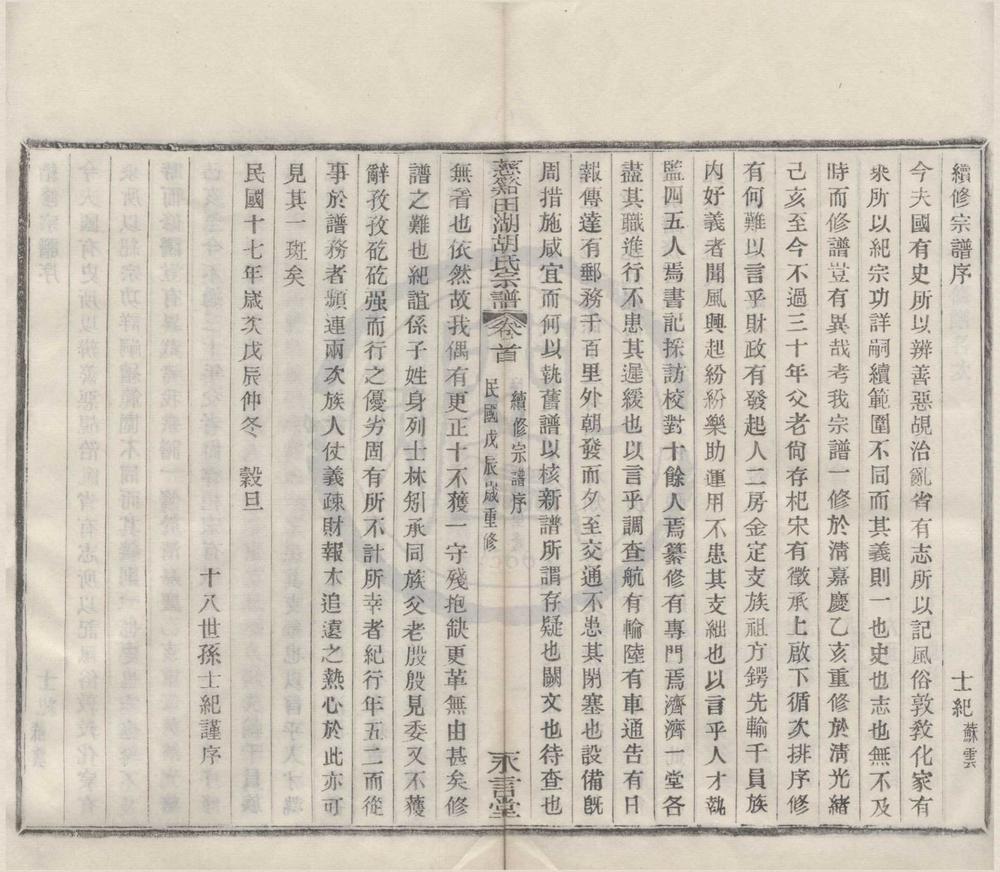 續修宗譜序
士紀蘇雲
今夫國有史所以辨善惡覘治亂省有志所以記風俗敦教化家有
乘所以紀宗功詳嗣續範圍不同而其義則一也史也志也無不及
時而修譜豈有異哉考我宗譜一修於淸嘉慶乙亥重修於淸光緖
己亥至今不過三十年父老尙存杞宋有徵承上啟下循次排序修
有何難以言乎財政有發起人二房金定支族祖方鍔先輸千員族
內好義者聞風興起紛紛樂助運用不患其支絀也以言乎人才總
監四五人焉書記採訪校對十餘人焉纂修有專門焉濟濟一堂各
盡其職進行不患其遲緩也以言乎調查航有輪陸有車通告有日
報傳達有郵務千百里外朝發而夕至交通不患其閉塞也設備旣
周措施咸宜而何以執舊譜以核新譜所謂存疑也闕文也待查也
慈谿田湖胡氏宗譜
卷首
續修宗譜序
民國戊辰歲重修
永言堂
無者也依然故我偶有更正十不獲一守殘抱缺更革無由甚矣修
譜之難也紀誼係子姓身列士林夙承同族父老殷殷見委又不獲
辭孜孜矻矻强而行之優劣固有所不計所幸者紀行年五二而從
事於譜務者頻連兩次族人仗義疎財報本追遠之熱心於此亦可
見其一斑矣
民國十七年歲次戊辰仲冬 穀旦
十八世孫士紀謹序